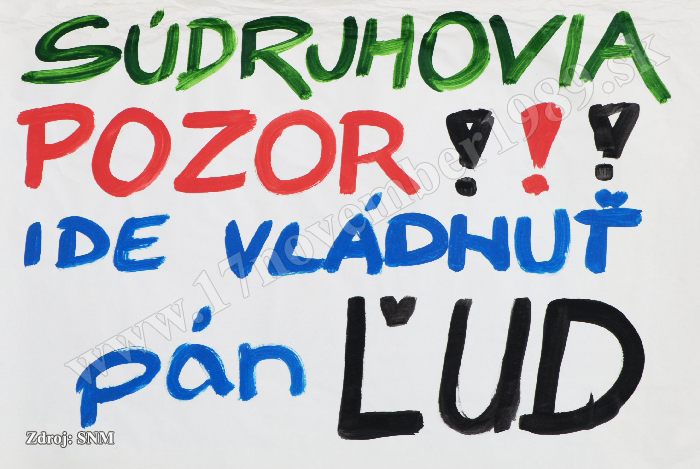 SÚDRUHOVIA
POZOR !!!
IDE VLÁDNUŤ
pán ĽUD
www.17november1989.sk
Zdroj: SNM